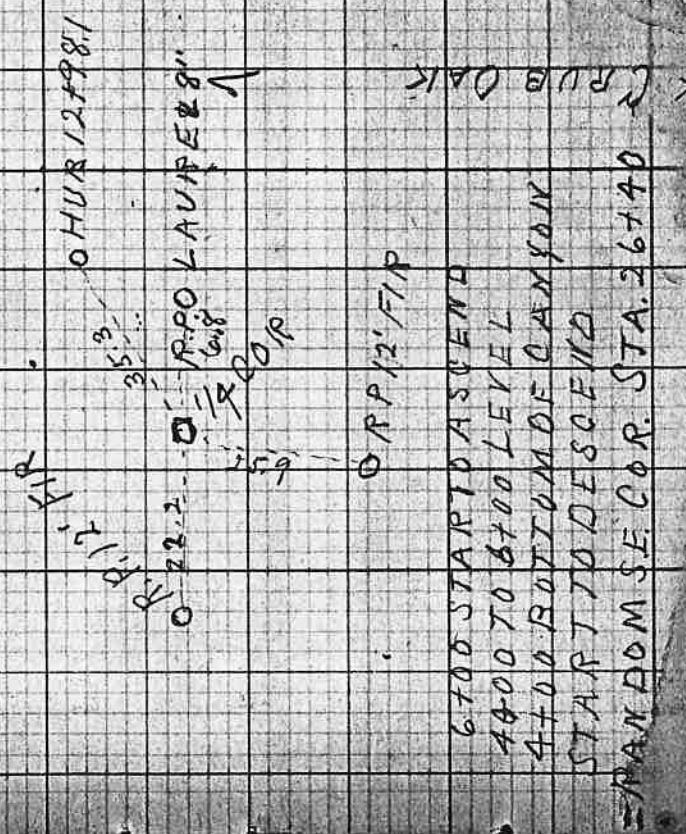 HUB 12+98.1
R.P. 12" FIR
35.3
22.2
R.P.O LAUREL 8"
6.8
1/4 COR
15.9
RP 12" FIR
6+00 START TO ASCEND
4+00 TO 6+00 LEVEL
4+00 BOTTOM OF CANYON
START TO DESCEND
=RANDOM S.E. COR. STA. 26+40
CRUB OAK